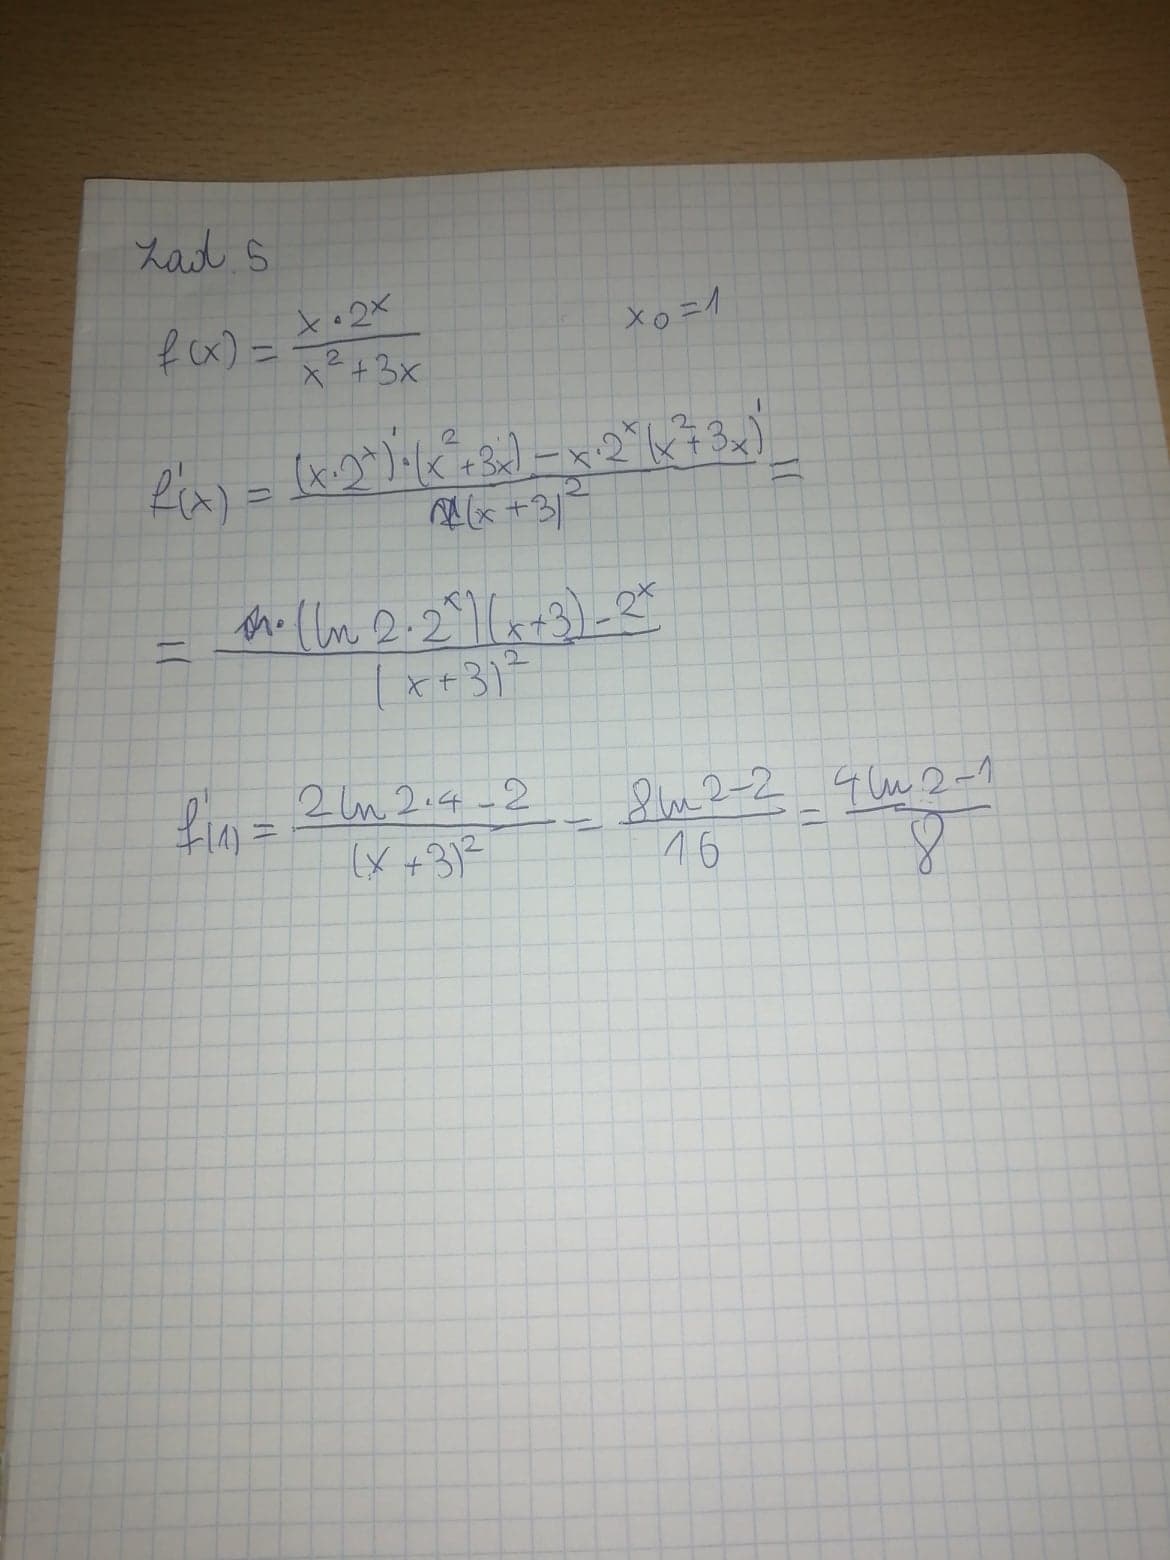 Zad. 5
f(x) = x·2^x / x²+3x    x₀=1
f'(x) = (x·2^x)'·(x²+3x) - x·2^x(x²+3x)' / (x+3)² =
= (ln 2·2^x)(x+3) - 2^x / (x+3)²
f'(1) = 2 ln 2·4 - 2 / (x+3)² = 8 ln 2 - 2 / 16 = 4 ln 2 - 1 / 8